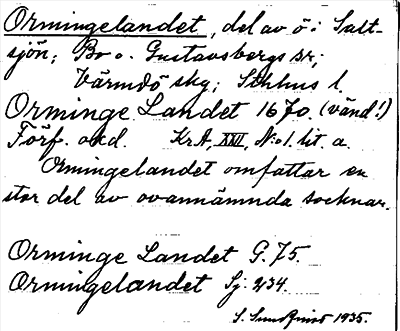 Ormingelandet, del av ö i Salt-
sjön; Bo o. Gustavsbergs sr;
Värmdö skg; Sthlms l.
Orminge Landet 1670. (vänd!)
Förf. akd. KrA, XXII, N:o 1. lit. a.
Ormingelandet omfattar en
stor del av ovannämnda socknar.
Orminge Landet G. 75.
Ormingelandet Sj: 234.
S. Sundqvist 1935.